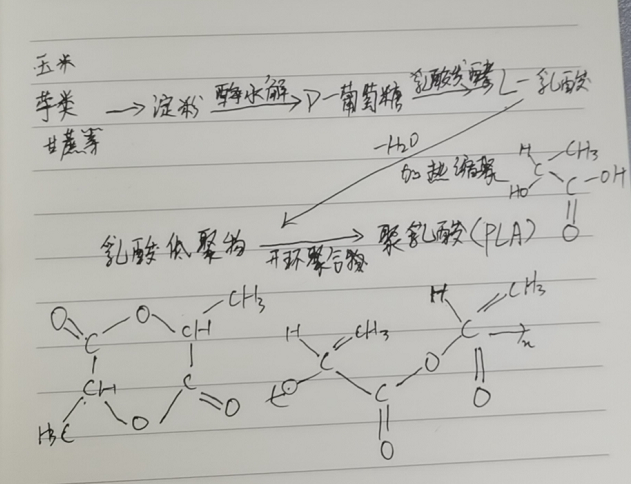 玉米
芋类 → 淀粉 酶水解 D-葡萄糖 乳酸发酵 L-乳酸
甘蔗等
-H2O
加热缩聚
H CH3
HO C C-OH
O
乳酸低聚物 开环聚合 聚乳酸(PLA)
CH3
O O CH H CH3 H CH3
C C C
CH C O C O
H3C O O C n
O O